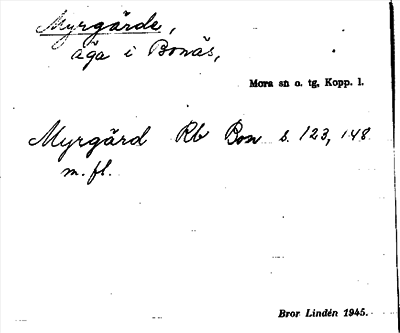 Myrgärde,
äga i Bonäs,
Mora sn o. tg, Kopp. l.
Myrgärd Rb Bon s. 123, 148
m. fl.
Bror Lindén 1945.